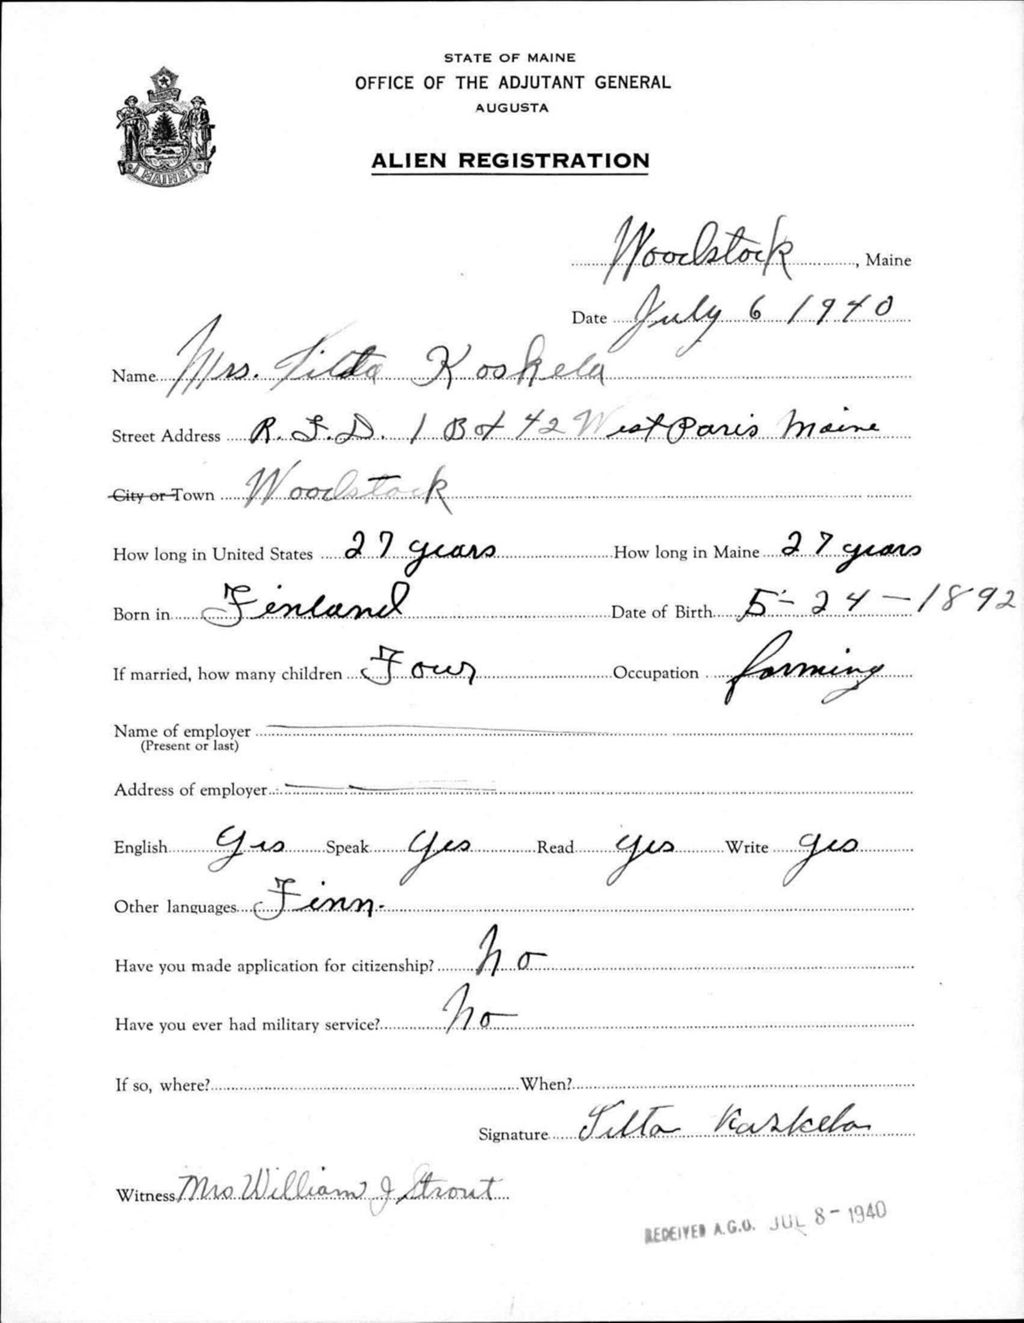 STATE OF MAINE
OFFICE OF THE ADJUTANT GENERAL
AUGUSTA
MAINE
ALIEN REGISTRATION
Woodstock, Maine
Date July 6 1940
Name Mrs. Koskela
Street Address R.F.D. 1 Box 42 West Paris Maine
City or Town Woodstock
How long in United States 27 years How long in Maine 27 years
Born in Finland Date of Birth 5-24-1892
If married, how many children Four Occupation farming
Name of employer
(Present or last)
Address of employer
English Yes Speak Yes Read Yes Write Yes
Other languages Finn.
Have you made application for citizenship? No
Have you ever had military service? No
If so, where? When?
Signature
Witness Mrs William J Strout
RECEIVED A.G.O. JUL 8 - 1940